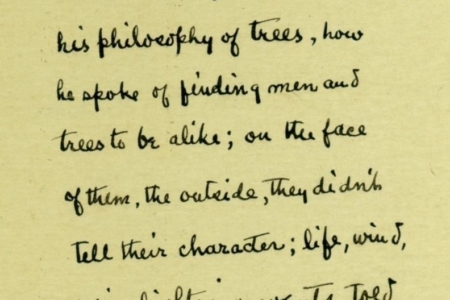 his philosophy of trees, how
he spoke of finding men and
trees to be alike; on the face
of them, the outside, they didn't
tell their character; life, wind,
told